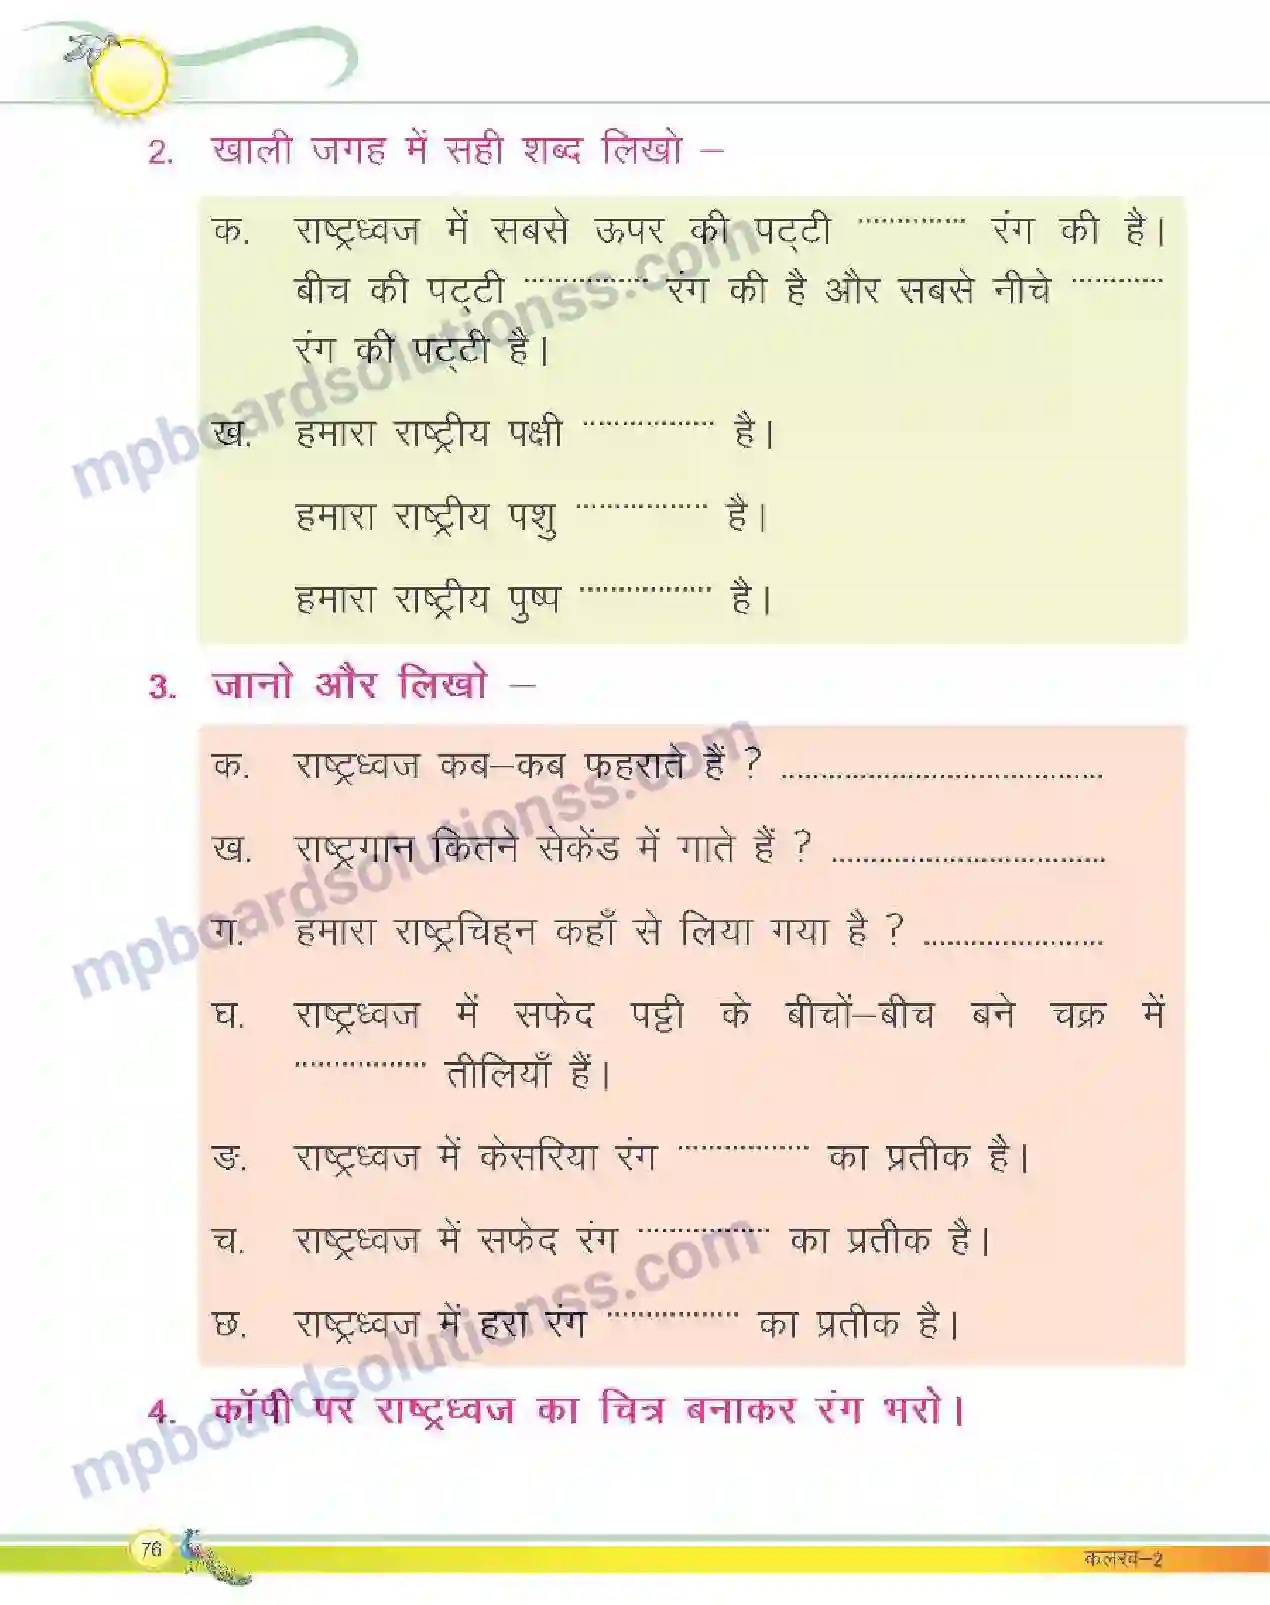 2. खाली जगह में सही शब्द लिखो –
क. राष्ट्रध्वज में सबसे ऊपर की पट्‌टी .............. रंग की है।
बीच की पट्‌टी ................ रंग की है और सबसे नीचे ............
रंग की पट्‌टी है।
ख. हमारा राष्ट्रीय पक्षी ................. है।
हमारा राष्ट्रीय पशु ................. है।
हमारा राष्ट्रीय पुष्प ................. है।
3. जानो और लिखो –
क. राष्ट्रध्वज कब–कब फहराते हैं ? .........................................
ख. राष्ट्रगान कितने सेकेंड में गाते हैं ? ...................................
ग. हमारा राष्ट्रचिह्‌न कहाँ से लिया गया है ? .......................
घ. राष्ट्रध्वज में सफेद पट्टी के बीचों–बीच बने चक्र में
................. तीलियाँ हैं।
ङ. राष्ट्रध्वज में केसरिया रंग ................. का प्रतीक है।
च. राष्ट्रध्वज में सफेद रंग ................. का प्रतीक है।
छ. राष्ट्रध्वज में हरा रंग ................. का प्रतीक है।
4. कॉपी पर राष्ट्रध्वज का चित्र बनाकर रंग भरो।
76
कलरव–2
mpboardsolutionss.com
mpboardsolutionss.com
mpboardsolutionss.com